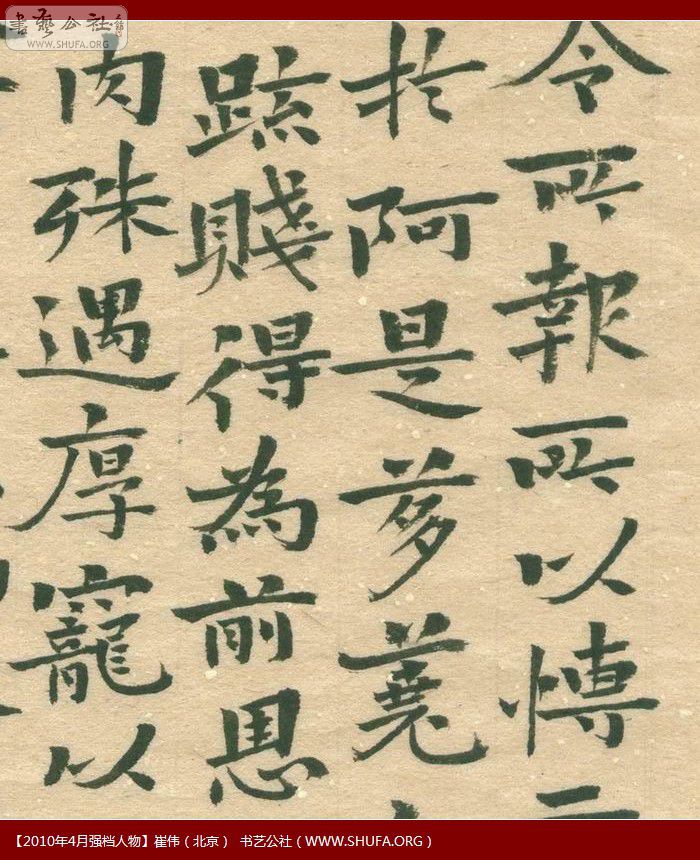 書藝公社
WWW.SHUFA.ORG
令所報所以愽
於阿是芻蕘
䟽賤得為前恩
肉殊遇厚寵以
【2010年4月强档人物】崔伟（北京） 书艺公社（WWW.SHUFA.ORG）